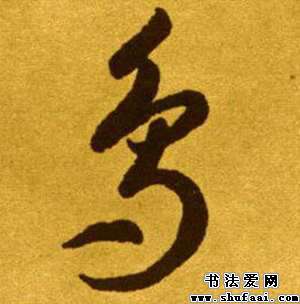 鸟
书法爱网
www.shufaai.com